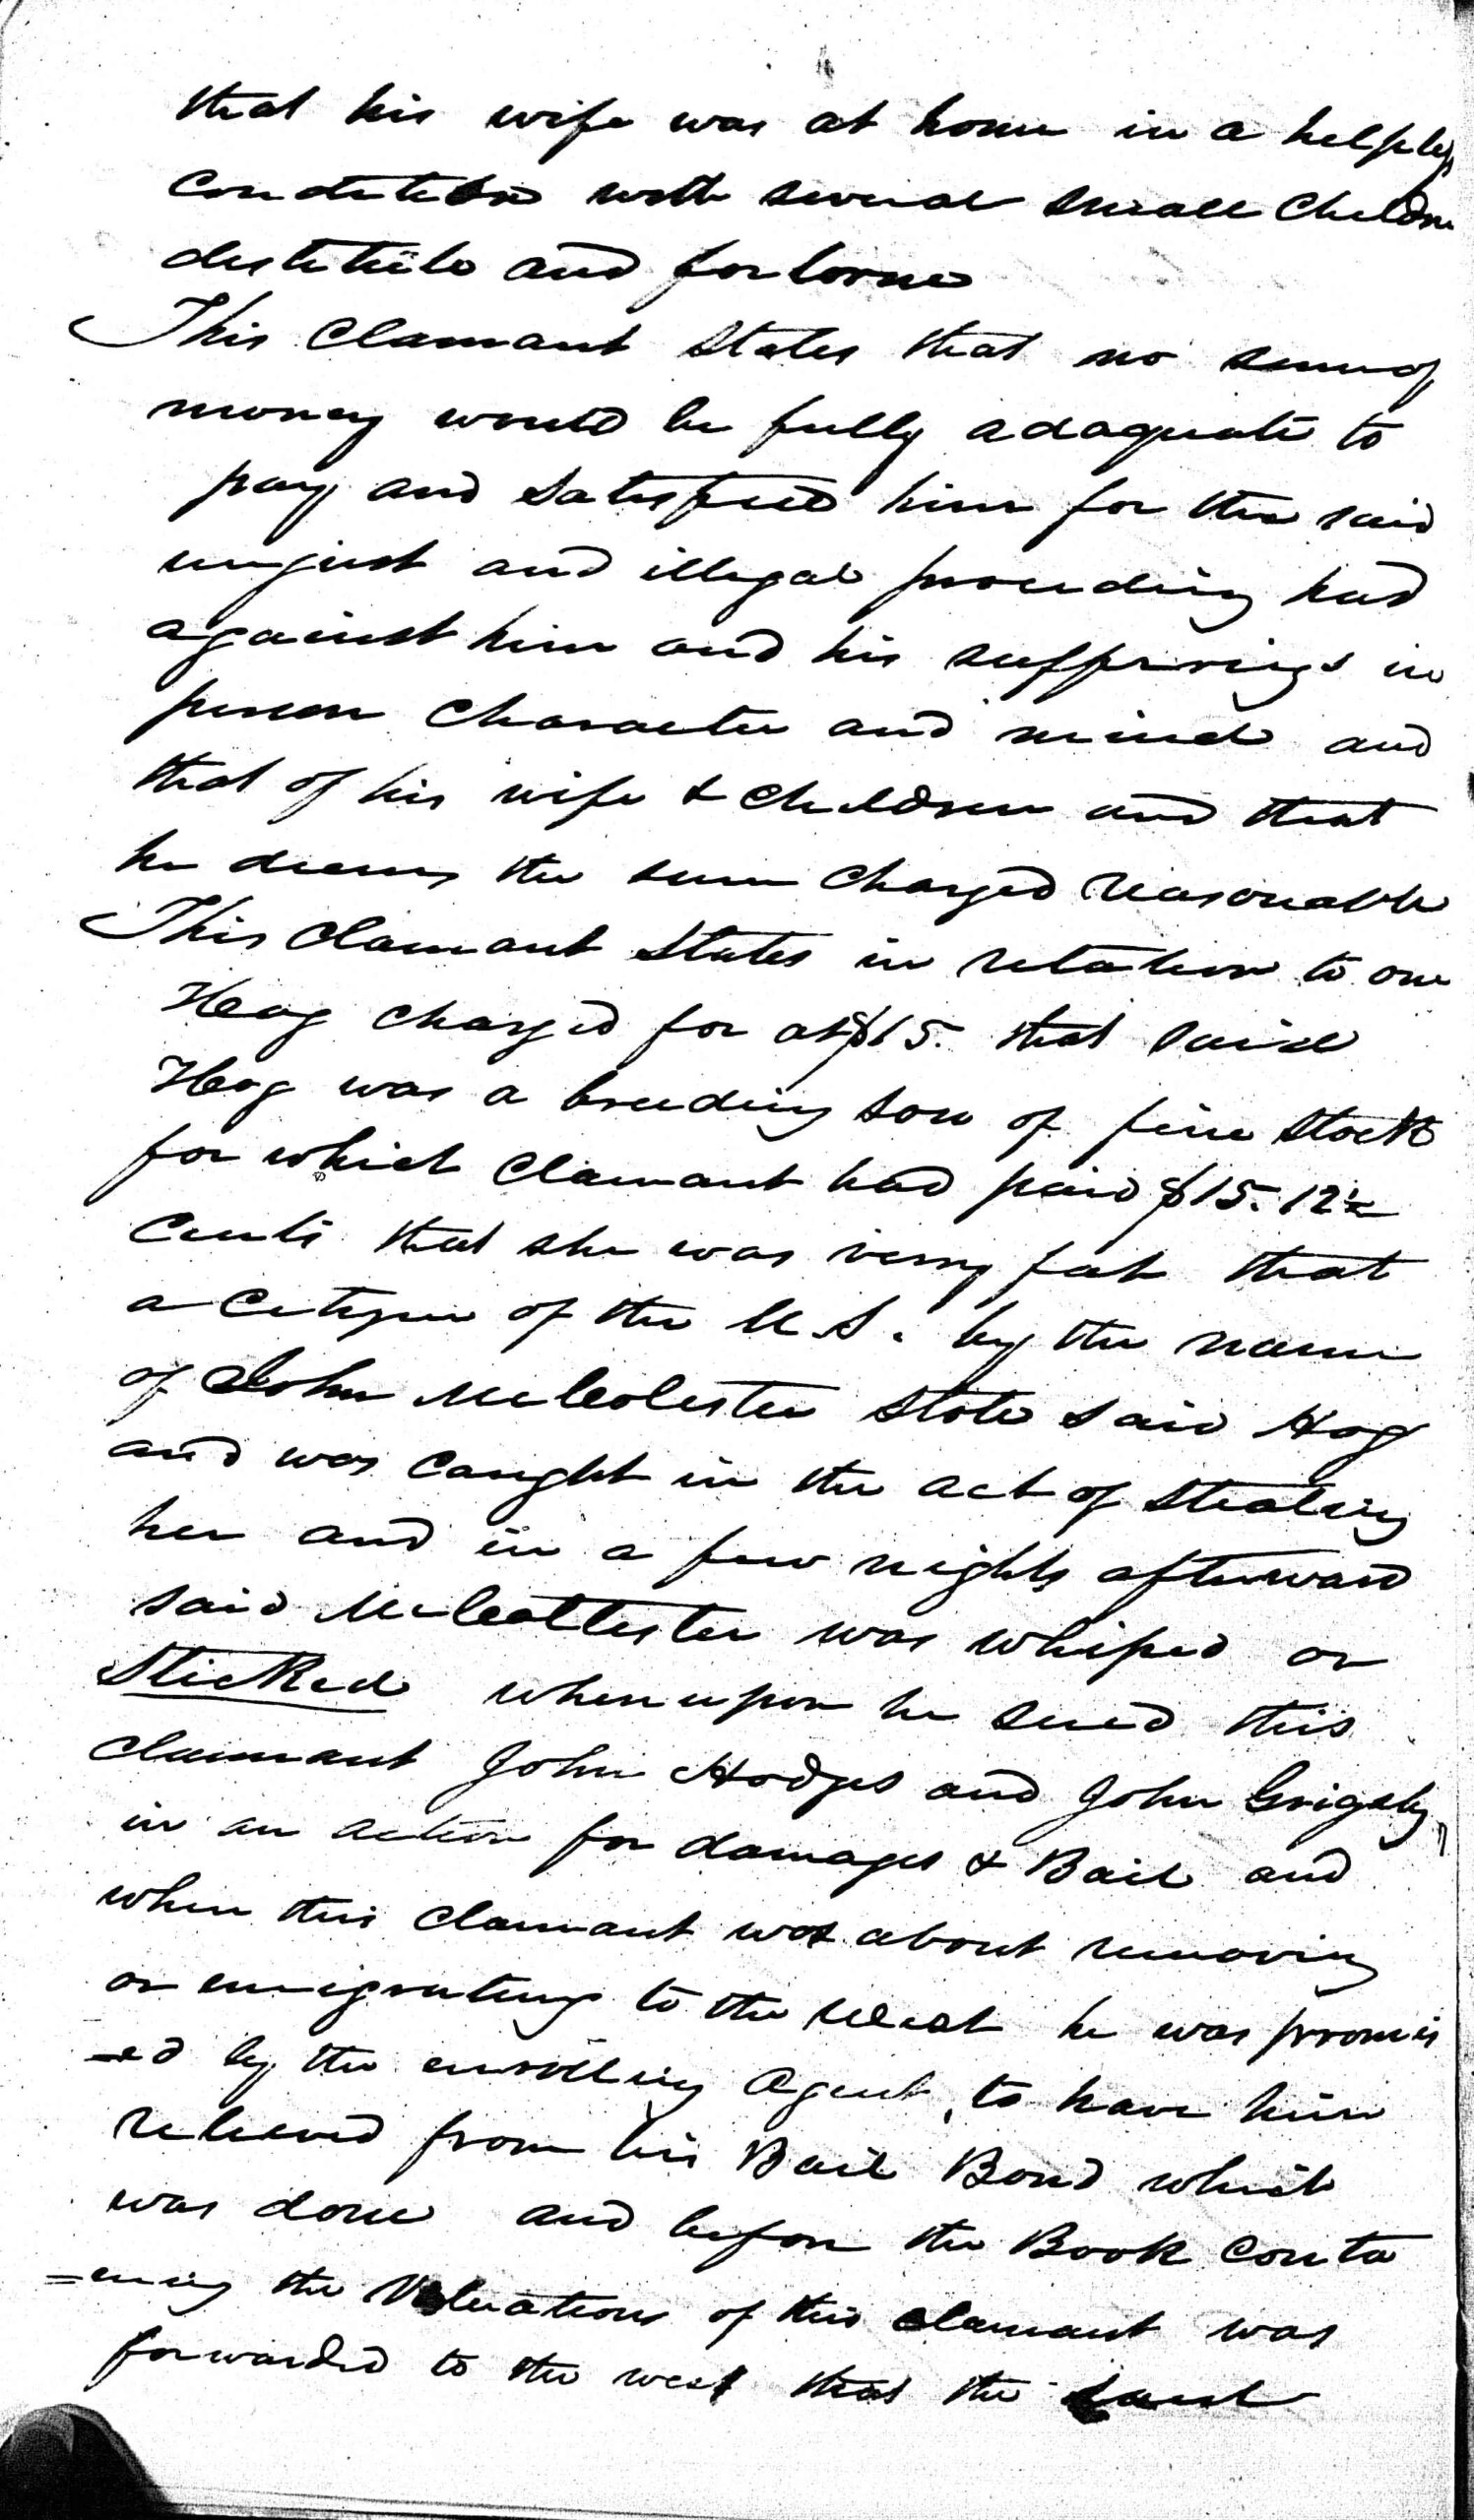 that his wife was at home in a helpless
condition with several small Children
destitute and forlorne
This Clamant States that no sum of
money would be fully adaquate to
pay and satisfied him for the said
unjust and illegal proceeding had
against him and his sufferings in
person Character and mind and
that of his wife & children and that
he deems the sum Charged reasonable
This Clamant States in relation to one
Hog charged for at $15. that said
Hog was a breeding sow of fine stock
for which Clamant had paid $15.12½
Cents that she was verry fat that
a Citizen of the U.S. by the name
of John McColester stole said Hog
and was caught in the act of stealing
her and in a few nights afterward
said McCollester was whiped or
Sticked whereupon he sued this
claimant John Hodges and John Grigsby
in an action for damages & Bail and
when this clamant was about removing
or emigrating to the West he was promis
-ed by the enrolling Agent, to have him
released from his Bail Bond which
was done and before the Book conta
=ening the Valuations of this clamant was
forwarded to the west that the said